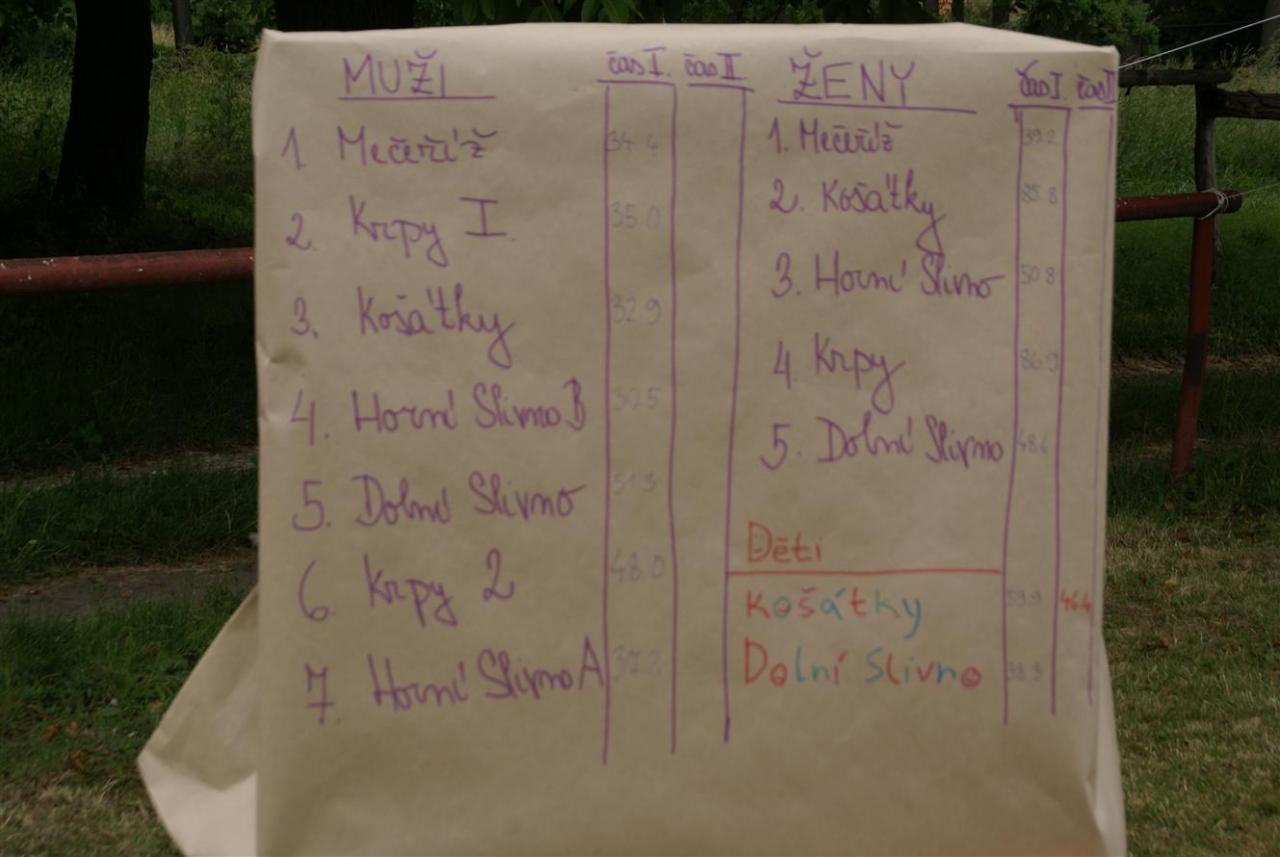 MUŽI čas I. čas II
1 Mečeříž 34.4
2. Krpy I. 35.0
3. Košátky 32.9
4. Horní Slivno B 30.5
5. Dolní Slivno 51.3
6. Krpy 2 48.0
7. Horní Slivno A 37.2
ŽENY čas I. čas II
1. Mečeříž 39.2
2. Košátky 85.8
3. Horní Slivno 50.8
4 Krpy 86.9
5. Dolní Slivno 48.6
Děti
Košátky 59.9 46.4
Dolní Slivno